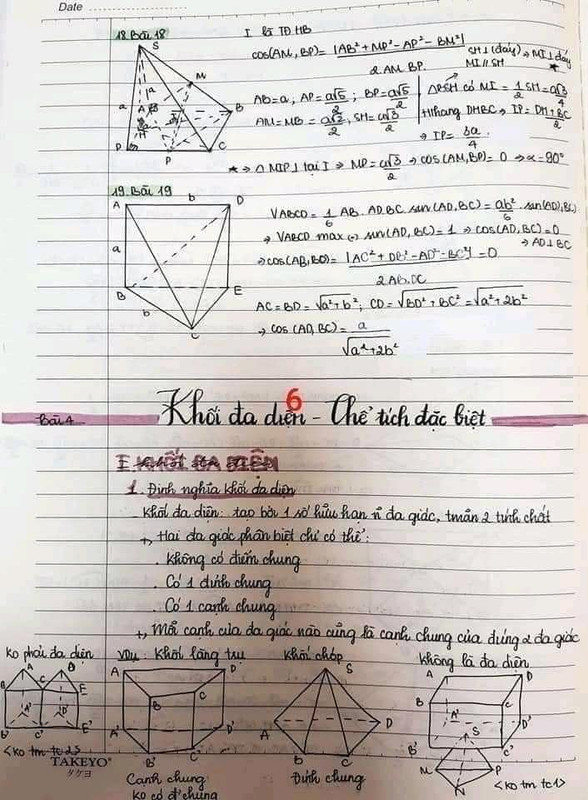 Date
18. Bài 18
I là TĐ HB
cos(AM, BP) = |AB² + MP² - AP² - BM²| / 2 AM.BP
SH⊥(đáy) → MI⊥đáy
MI // SH
AB = a, AP = a√5/2 ; BP = a√5/2
AM = MB = a√2/2, SH = a√3/2
△PSH có MI = 1/2 SH = a√3/4
Hthang DHBC → IP = DH + BC / 2
→ IP = 3a/4
* → △ MIP⊥ tại I → MP = a√3/2 → cos(AM, BP) = 0 → α = 90°
S
M
a
B
P
C
H
19. Bài 19
A
b
D
a
B
E
b
C
VABCD = 1/6 AB. AD. BC. sin(AD, BC) = ab²/6 . sin(AD, BC)
→ VABCD max ↔ sin(AD, BC) = 1 → cos(AD, BC) = 0
→ AD⊥BC
→ cos(AB, BC) = |AC² + DB² - AD² - BC²| / 2AB.DC = 0
AC = BD = √a² + b² ; CD = √BD² + BC² = √a² + 2b²
→ cos (AD, BC) = a / √a² + 2b²
6
Bài 4
Khối đa diện - Thể tích đặc biệt
I KHỐI ĐA DIỆN
1. Định nghĩa khối đa diện
Khối đa diện: tạo bởi 1 số hữu hạn n đa giác, tmãn 2 tính chất
+, Hai đa giác phân biệt chỉ có thể:
. Không có điểm chung
. Có 1 đỉnh chung
. Có 1 cạnh chung
+, Mỗi cạnh của đa giác nào cũng là cạnh chung của đúng 2 đa giác
Ko phải đa diện
VDụ: Khối lăng trụ
Khối chóp
Không là đa diện
A D
B C E
A' D'
B' C' E'
<ko tm tc2>
A D
B C
A' D'
B' C'
Cạnh chung
Ko có đ' chung
S
A D
B C
Đỉnh chung
A D
B C
A' D'
B' S C'
M P
N
<ko tm tc1>
TAKEYO®
タケヨ